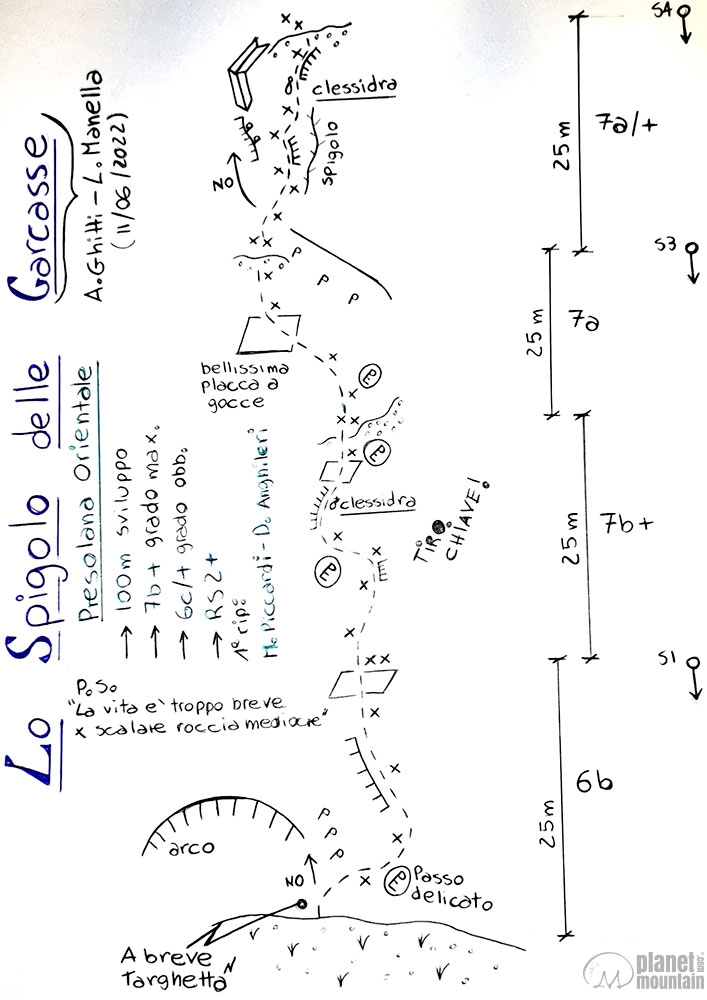 Lo Spigolo delle Garcasse
A. Ghitti - L. Manella
(11/06/2022)
Presolana Orientale
→ 100m sviluppo
→ 7b+ grado max.
→ 6c/+ grado obb.
→ RS2+
1° rip:
M. Piccardi - D. Anghileri
P.S.
"La vita e' troppo breve
x scalare roccia mediocre"
S4
clessidra
7a/+
25m
spigolo
NO
S3
P
P
P
7a
25m
bellissima
placca a
gocce
PE
PE
clessidra
TIRO
CHIAVE!
7b+
25m
PE
S1
6b
25m
arco
P
P
P
NO
PE
Passo
delicato
A breve
Targhetta
planet
mountain
.COM